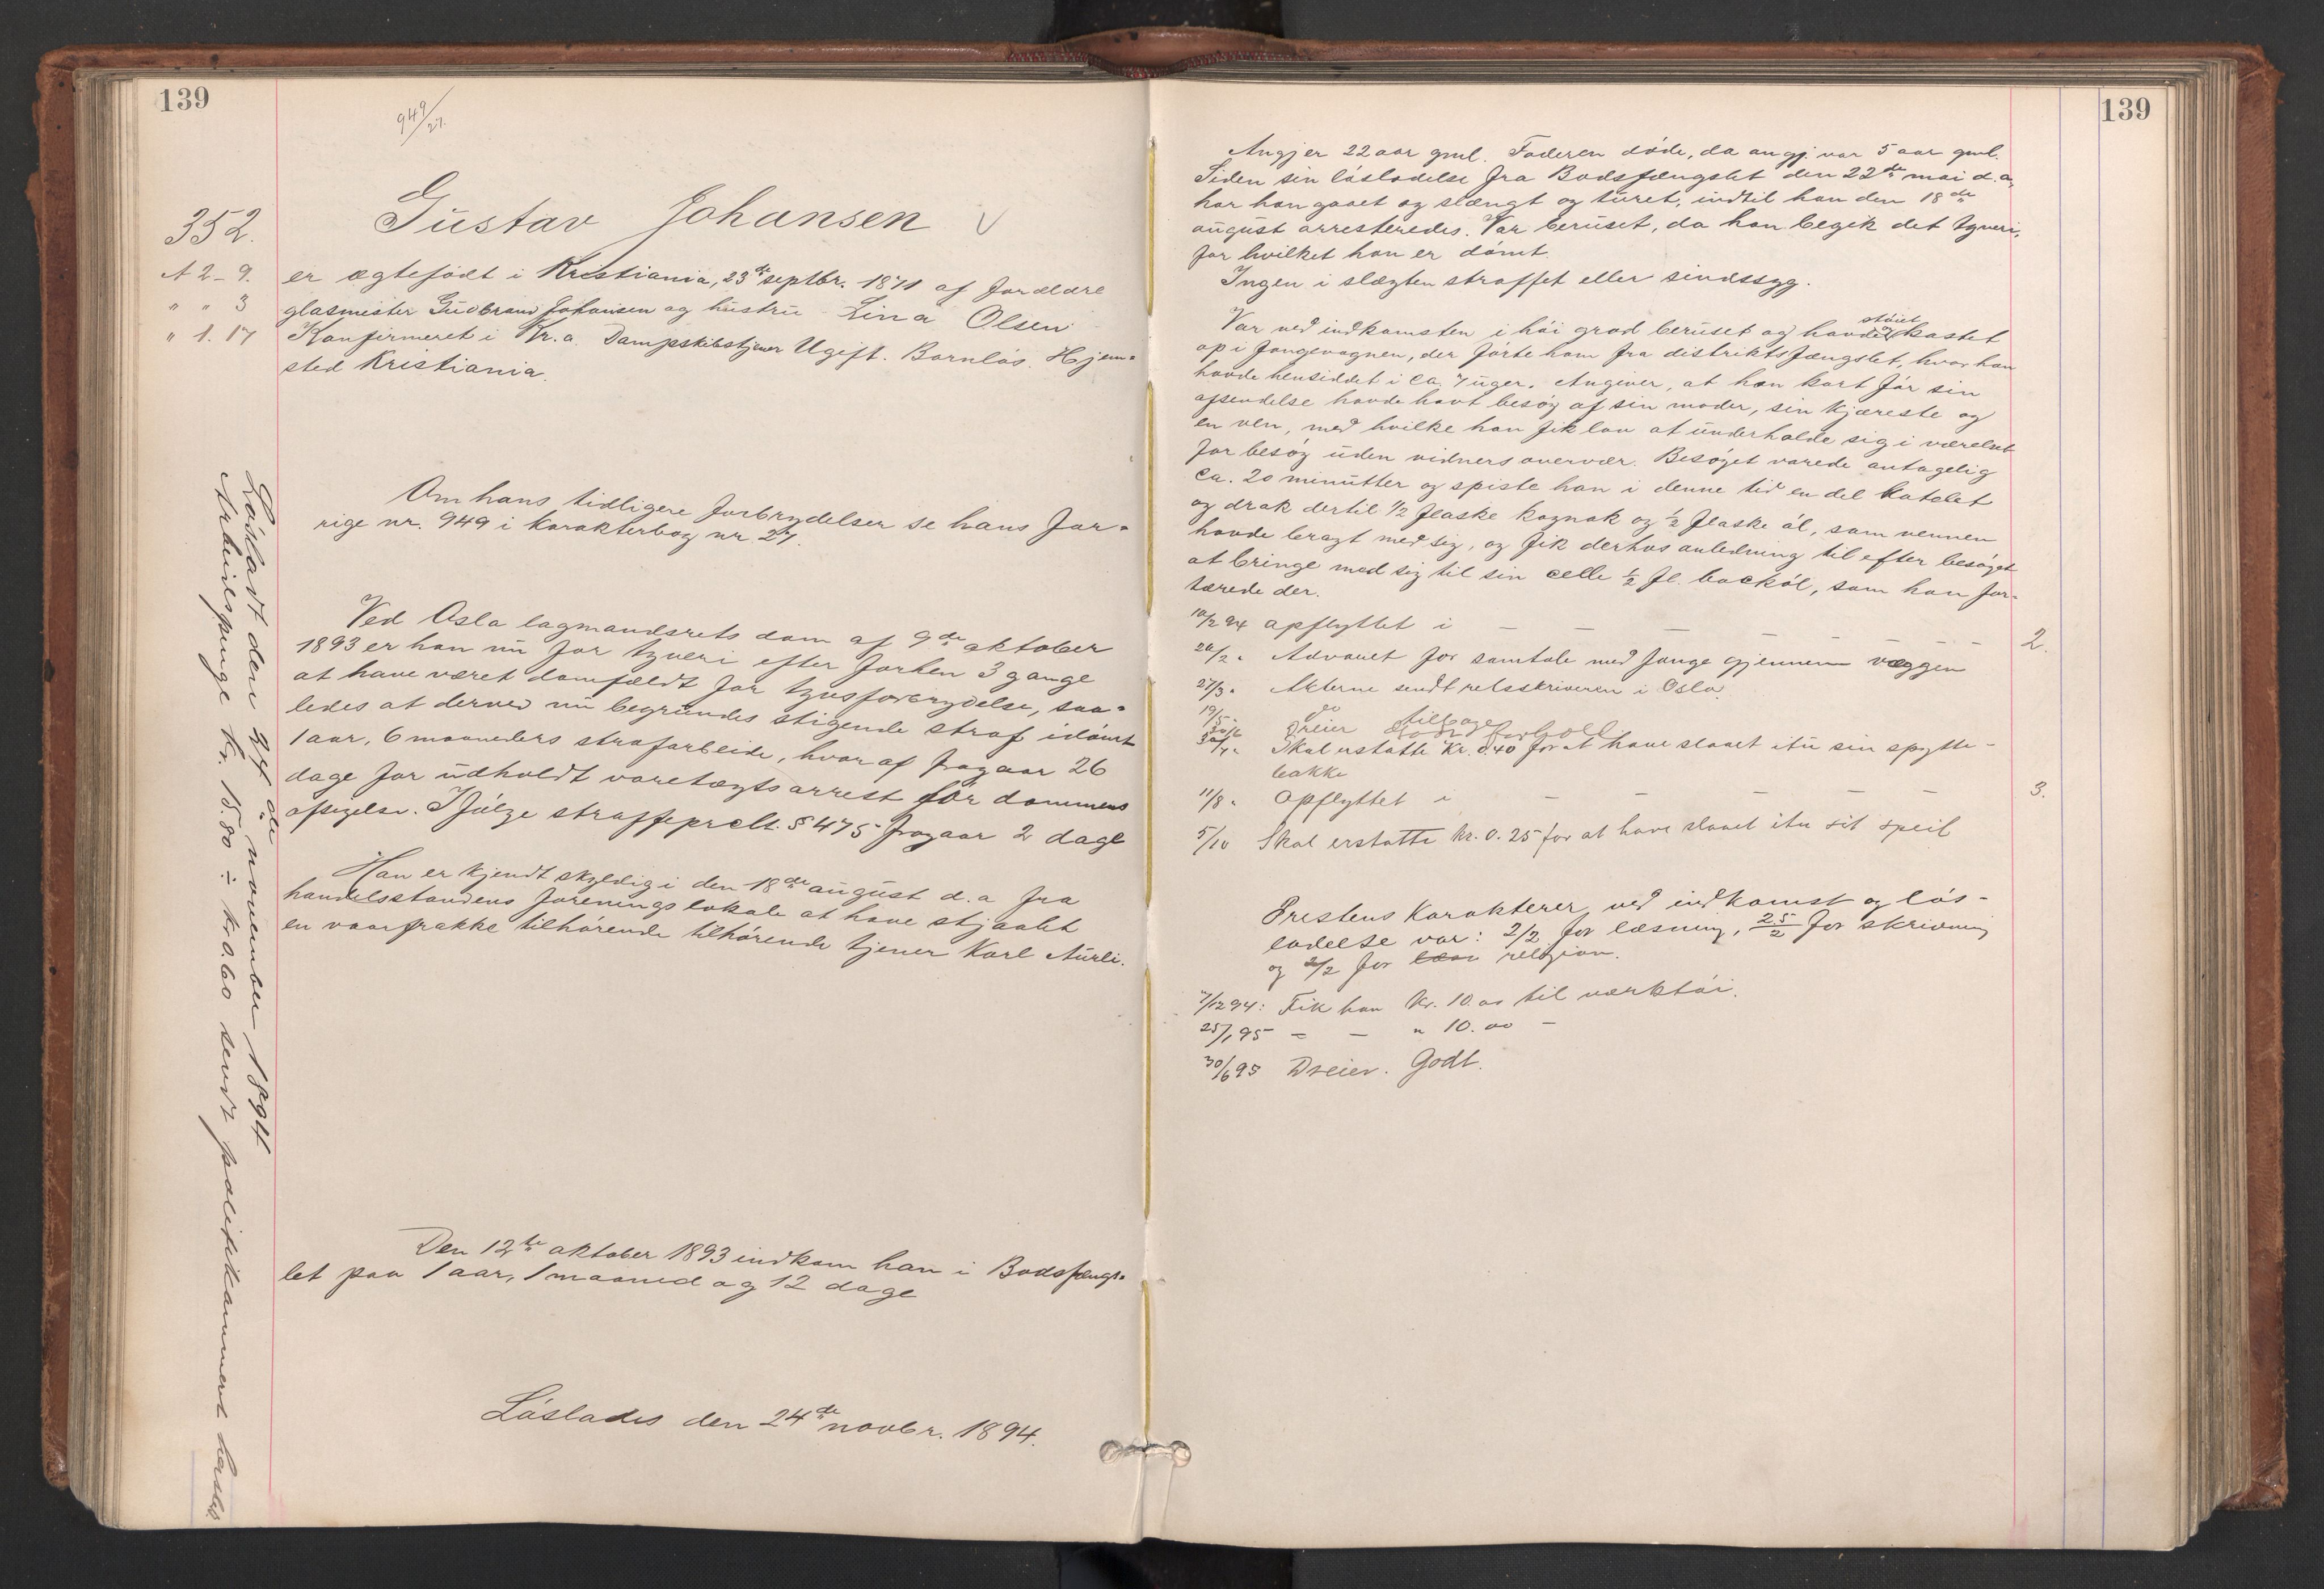 139
949/27.
352.
Gustav Johansen
A 2-9.
er ægtefødt i Kristiania, 23de septbr. 1871 af forældre
" " 3
glasmester Gudbrand Johansen og hustru Lina Olsen
" 1. 17
Konfirmeret i Kr.a. Dampskibstjener Ugift. Barnløs. Hjem-
sted Kristiania.
Om hans tidligere forbrydelser se hans for-
rige nr. 949 i karakterbog nr. 27.
Ved Oslo lagmandsrets dom af 9de oktober
1893 er han nu for tyveri efter forhen 3 gange
at have været domfældt for tyvsforbrydelse, saa-
ledes at derved nu begrundes stigende straf idømt
1 aar, 6 maaneders strafarbeide, hvoraf fragaar 26
dage for udholdt varetægtsarrest før dommens
afsigelse. Ifølge straffeprclt. § 475 fragaar 2 dage
Han er kjendt skyldig i den 18de august d.a fra
handelsstandens forenings lokale at have stjaalet
en vaarfrakke tilhørende tilhørende tjener Karl Aurli.
Den 12te oktober 1893 indkom han i Bodsfængs-
let paa 1 aar, 1 maaned og 12 dage
Løslades den 24de novbr. 1894.
Løsladt den 24de november 1894
Arbeidspenge kr. 15.80 ÷ kr. 0.60 sendt politikammeret hersteds
139
Angj er 22 aar gml. Faderen døde, da angj. var 5 aar gml.
Siden sin løsladelse fra Bodsfængslet den 22de mai d.a,
har han gaaet og slængt og turet, indtil han den 18de
august arresteredes. Var beruset, da han begik det tyveri,
for hvilket han er dømt.
Ingen i slægten straffet eller sindssyg.
Var ved indkomsten i høi grad beruset og havde støiet og kastet
op i fangevognen, der førte ham fra distriktsfængslet, hvor han
havde hensiddet i ca. 7 uger. Angiver, at han kort før sin
afsendelse havde havt besøg af sin moder, sin kjæreste og
en ven, med hvilke han fik lov at underholde sig i værelset
for besøg uden vidners overvær. Besøget varede antagelig
ca. 20 minutter og spiste han i denne tid en del kotelet
og drak dertil 1/2 flaske kognak og 1/2 flaske øl, som vennen
havde bragt med sig, og fik derhos anledning til efter besøget
at bringe med sig til sin celle 1/2 fl. bockøl, som han for-
tærede der.
10/2 94 opflyttet i — — — — — — 2.
20/2 " Advaret for samtale med fange gjennem væggen
27/3 " Akterne sendt retsskriveren i Oslo.
19/5 " do tilbage
30/6 Dreier Godt forhold
30/7 " Skal erstatte kr. 0.40 for at have slaaet itu sin spytte-
bakke
11/8 " Opflyttet i — — — — — 3.
5/10 Skal erstatte kr. 0.25 for at have slaaet itu sit speil
Prestens karakterer ved indkomst og løs-
ladelse var: 2/2 for læsning, 2.5/2 for skrivning
og 2/2 for religion.
7/12 94: Fik han kr. 10.00 til værktøi.
25/1 95 — — " 10.00 —
30/6 95 Dreier. Godt.